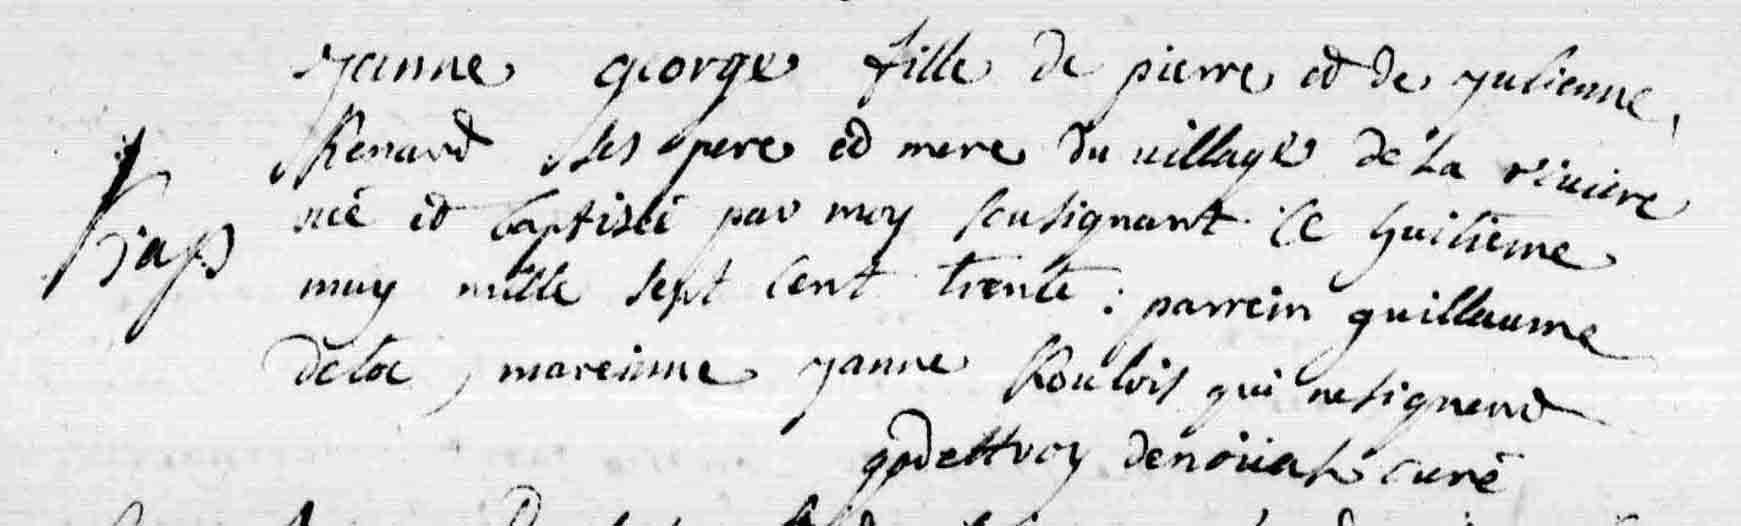 yanne george fille de pierre et de yulienne
Renard ses pere et mere du village de la riviere
bap
née et baptisée par moy sousignant le huitieme
may mille sept cent trente : parrein guillaume
, mareinne yanne Roulois qui ne signent
godeffroy curé